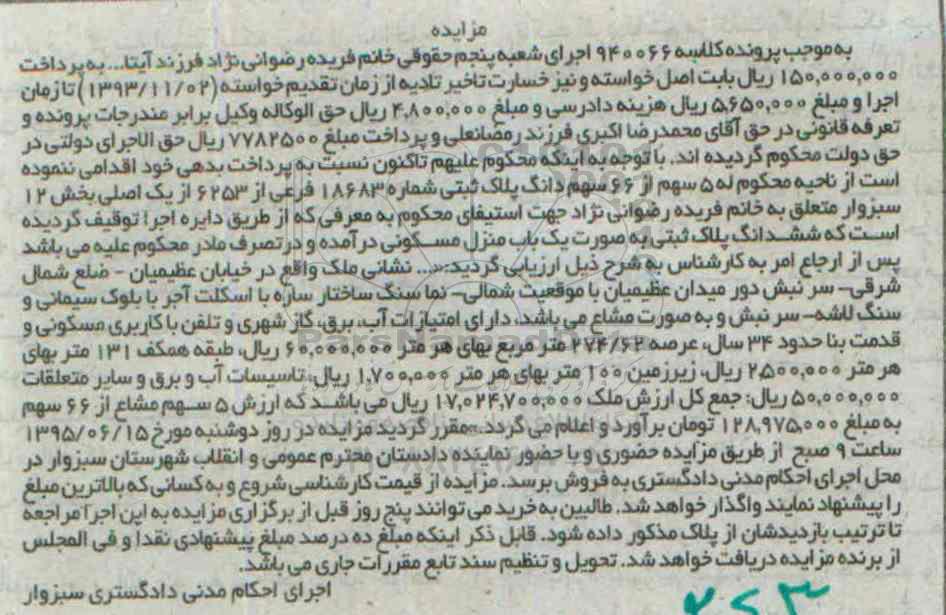 مزایده
به موجب پرونده کلاسه ۹۴۰۰۶۶ اجرای شعبه پنجم حقوقی خانم فریده رضوانی نژاد فرزند آیتا... به پرداخت
۱۵۰,۰۰۰,۰۰۰ ریال بابت اصل خواسته و نیز خسارت تاخیر تادیه از زمان تقدیم خواسته (۱۳۹۳/۱۱/۰۲) تا زمان
اجرا و مبلغ ۵,۶۵۰,۰۰۰ ریال هزینه دادرسی و مبلغ ۴,۸۰۰,۰۰۰ ریال حق الوکاله وکیل برابر مندرجات پرونده و
تعرفه قانونی در حق آقای محمدرضا اکبری فرزند رمضانعلی و پرداخت مبلغ ۷۷۸۲۵۰۰ ریال حق الاجرای دولتی در
حق دولت محکوم گردیده اند. با توجه به اینکه محکوم علیهم تاکنون نسبت به پرداخت بدهی خود اقدامی ننموده
است از ناحیه محکوم له ۵ سهم از ۶۶ سهم دانگ پلاک ثبتی شماره ۱۸۶۸۳ فرعی از ۶۲۵۳ از یک اصلی بخش ۱۲
سبزوار متعلق به خانم فریده رضوانی نژاد جهت استیفای محکوم به معرفی که از طریق دایره اجرا توقیف گردیده
است که ششدانگ پلاک ثبتی به صورت یک باب منزل مسکونی در آمده و در تصرف مادر محکوم علیه می باشد
پس از ارجاع امر به کارشناس به شرح ذیل ارزیابی گردید:«... نشانی ملک واقع در خیابان عظیمیان - ضلع شمال
شرقی- سر نبش دور میدان عظیمیان با موقعیت شمالی- نما سنگ ساختار سازه با اسکلت آجر با بلوک سیمانی و
سنگ لاشه- سر نبش و به صورت مشاع می باشد. دارای امتیازات آب، برق، گاز شهری و تلفن با کاربری مسکونی و
قدمت بنا حدود ۳۴ سال، عرصه ۲۷۴/۶۲ متر مربع بهای هر متر ۶۰,۰۰۰,۰۰۰ ریال، طبقه همکف ۱۳۱ متر بهای
هر متر ۲,۵۰۰,۰۰۰ ریال، زیرزمین ۱۰۰ متر بهای هر متر ۱,۷۰۰,۰۰۰ ریال، تاسیسات آب و برق و سایر متعلقات
۵۰,۰۰۰,۰۰۰ ریال: جمع کل ارزش ملک ۱۷,۰۲۴,۷۰۰,۰۰۰ ریال می باشد که ارزش ۵ سهم مشاع از ۶۶ سهم
به مبلغ ۱۲۸,۹۷۵,۰۰۰ تومان برآورد و اعلام می گردد.»مقرر گردید مزایده در روز دوشنبه مورخ ۱۳۹۵/۰۶/۱۵
ساعت ۹ صبح از طریق مزایده حضوری و با حضور نماینده دادستان محترم عمومی و انقلاب شهرستان سبزوار در
محل اجرای احکام مدنی دادگستری به فروش برسد. مزایده از قیمت کارشناسی شروع و به کسانی که بالاترین مبلغ
را پیشنهاد نمایند واگذار خواهد شد. طالبین به خرید می توانند پنج روز قبل از برگزاری مزایده به این اجرا مراجعه
تا ترتیب بازدیدشان از پلاک مذکور داده شود. قابل ذکر اینکه مبلغ ده درصد مبلغ پیشنهادی نقدا و فی المجلس
از برنده مزایده دریافت خواهد شد. تحویل و تنظیم سند تابع مقررات جاری می باشد.
اجرای احکام مدنی دادگستری سبزوار